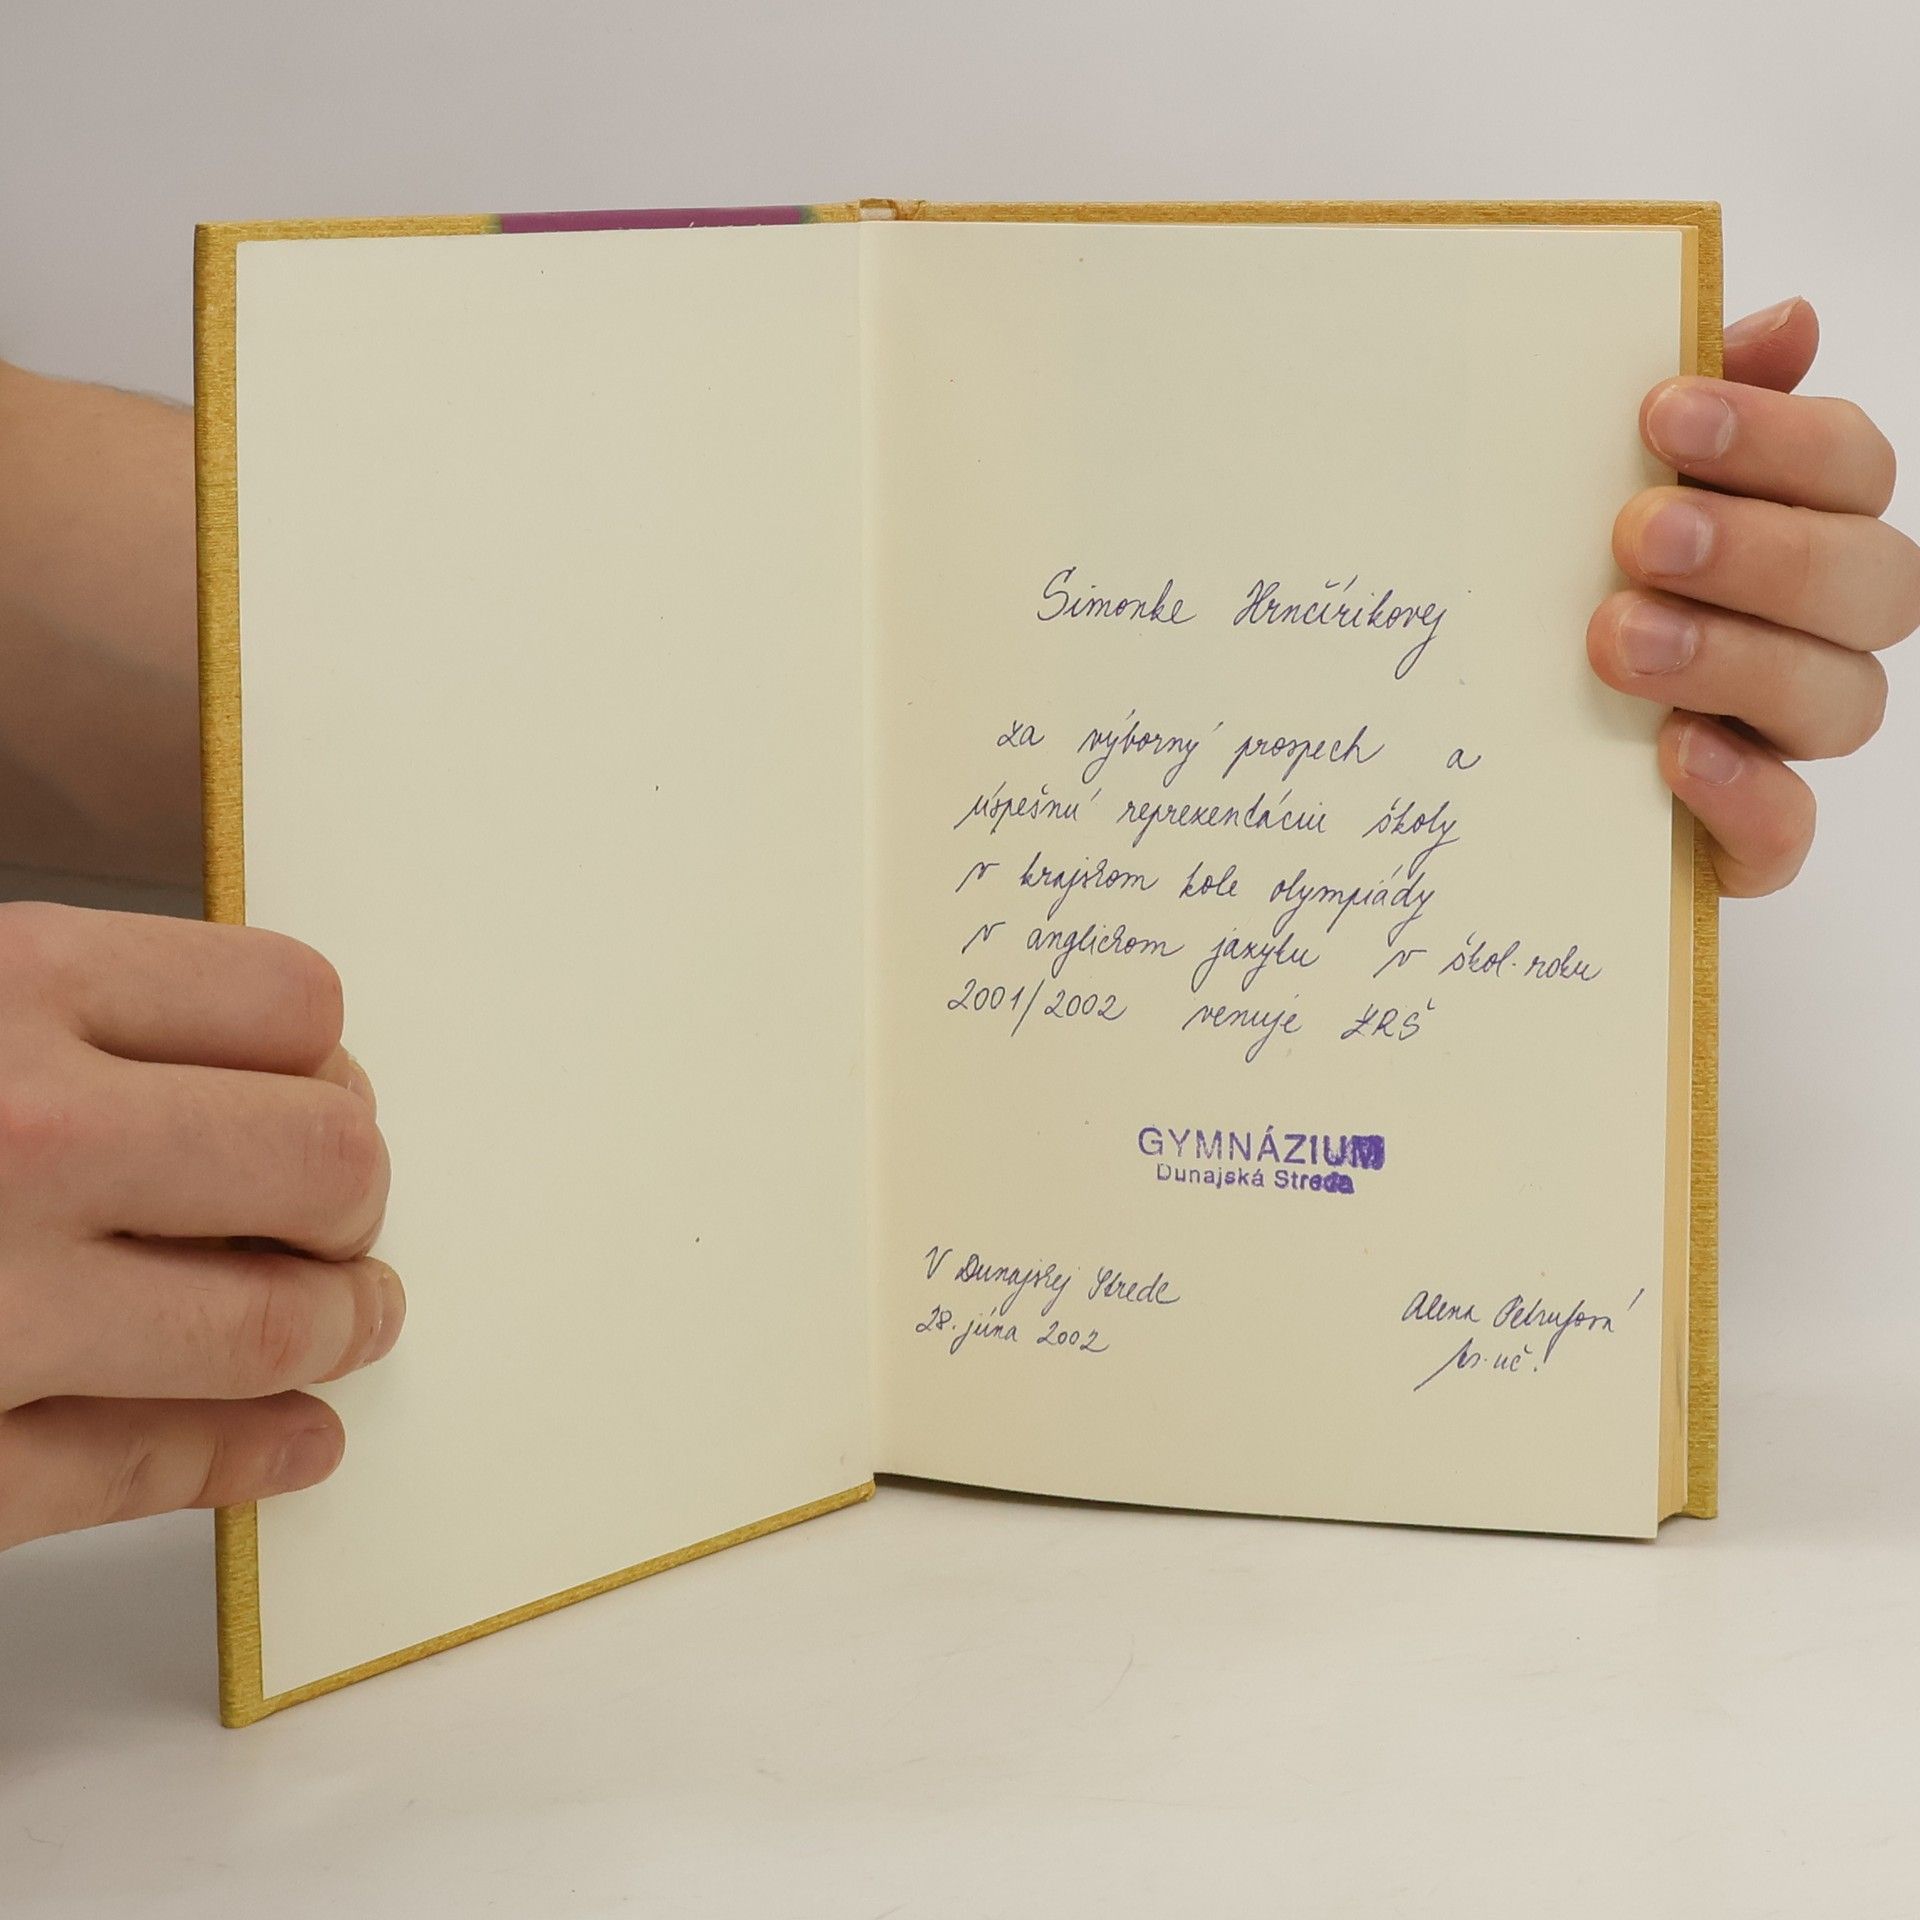 Simonke Hrnčírikovej
za výborný prospech a
úspešnú reprezentáciu školy
v krajskom kole olympiády
v anglickom jazyku v škol. roku
2001/2002 venuje ZRŠ
GYMNÁZIUM
Dunajská Streda
V Dunajskej Strede
28. júna 2002
Alena
uč.